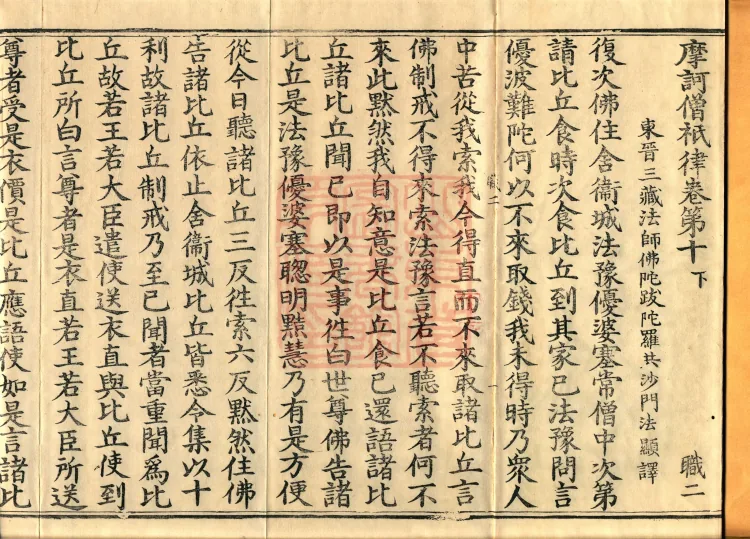 摩訶僧祇律卷第十 下 職二
東晉三藏法師佛陀跋陀羅共沙門法顯譯
復次佛住舍衞城法豫優婆塞常僧中次第
請比丘食時次食比丘到其家已法豫問言
優波難陀何以不來取錢我未得時乃衆人
中苦從我索我今得直而不來取諸比丘言
佛制戒不得來索法豫言若不聽索者何不
來此默然我自知意是比丘食已還語諸比
丘諸比丘聞已即以是事往白世尊佛告諸
比丘是法豫優婆塞聦明黠慧乃有是方便
從今日聽諸比丘三反往索六反默然住佛
告諸比丘依止舍衞城比丘皆悉令集以十
利故諸比丘制戒乃至已聞者當重聞爲比
丘故若王若大臣遣使送衣直與比丘使到
比丘所白言尊者是衣直若王若大臣所送
尊者受是衣價是比丘應語使如是言諸比
職二